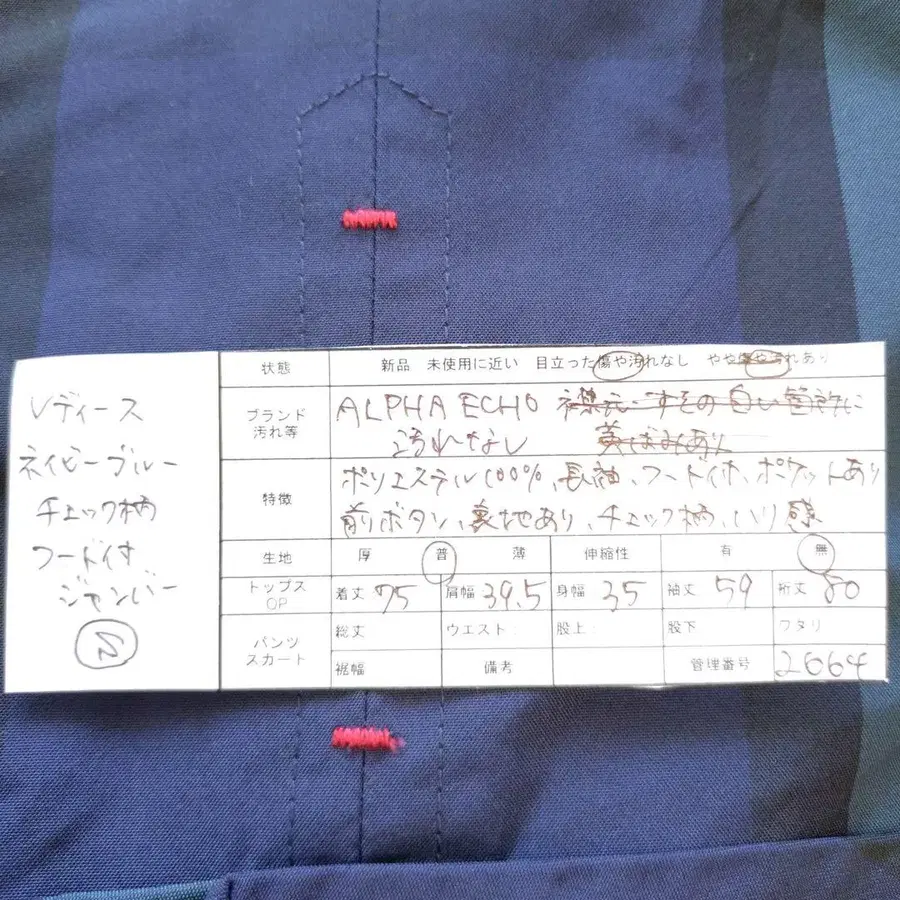 レディース
ネイビーブルー
チェック柄
フード付
ジャンバー
S
状態 新品 未使用に近い 目立った傷や汚れなし やや傷や汚れあり
ブランド 汚れ等 ALPHA ECHO 襟元・すその白い箇所に
汚れなし 黄ばみあり
特徴 ポリエステル100%、長袖、フード付、ポケットあり
前ボタン、裏地あり、チェック柄、ハリ感
生地 厚 普 薄 伸縮性 有 無
トップス OP 着丈 75 肩幅 39.5 身幅 35 袖丈 59 裄丈 80
パンツ スカート 総丈 ウエスト: 股上: 股下 ワタリ
裾幅 備考 管理番号 2664